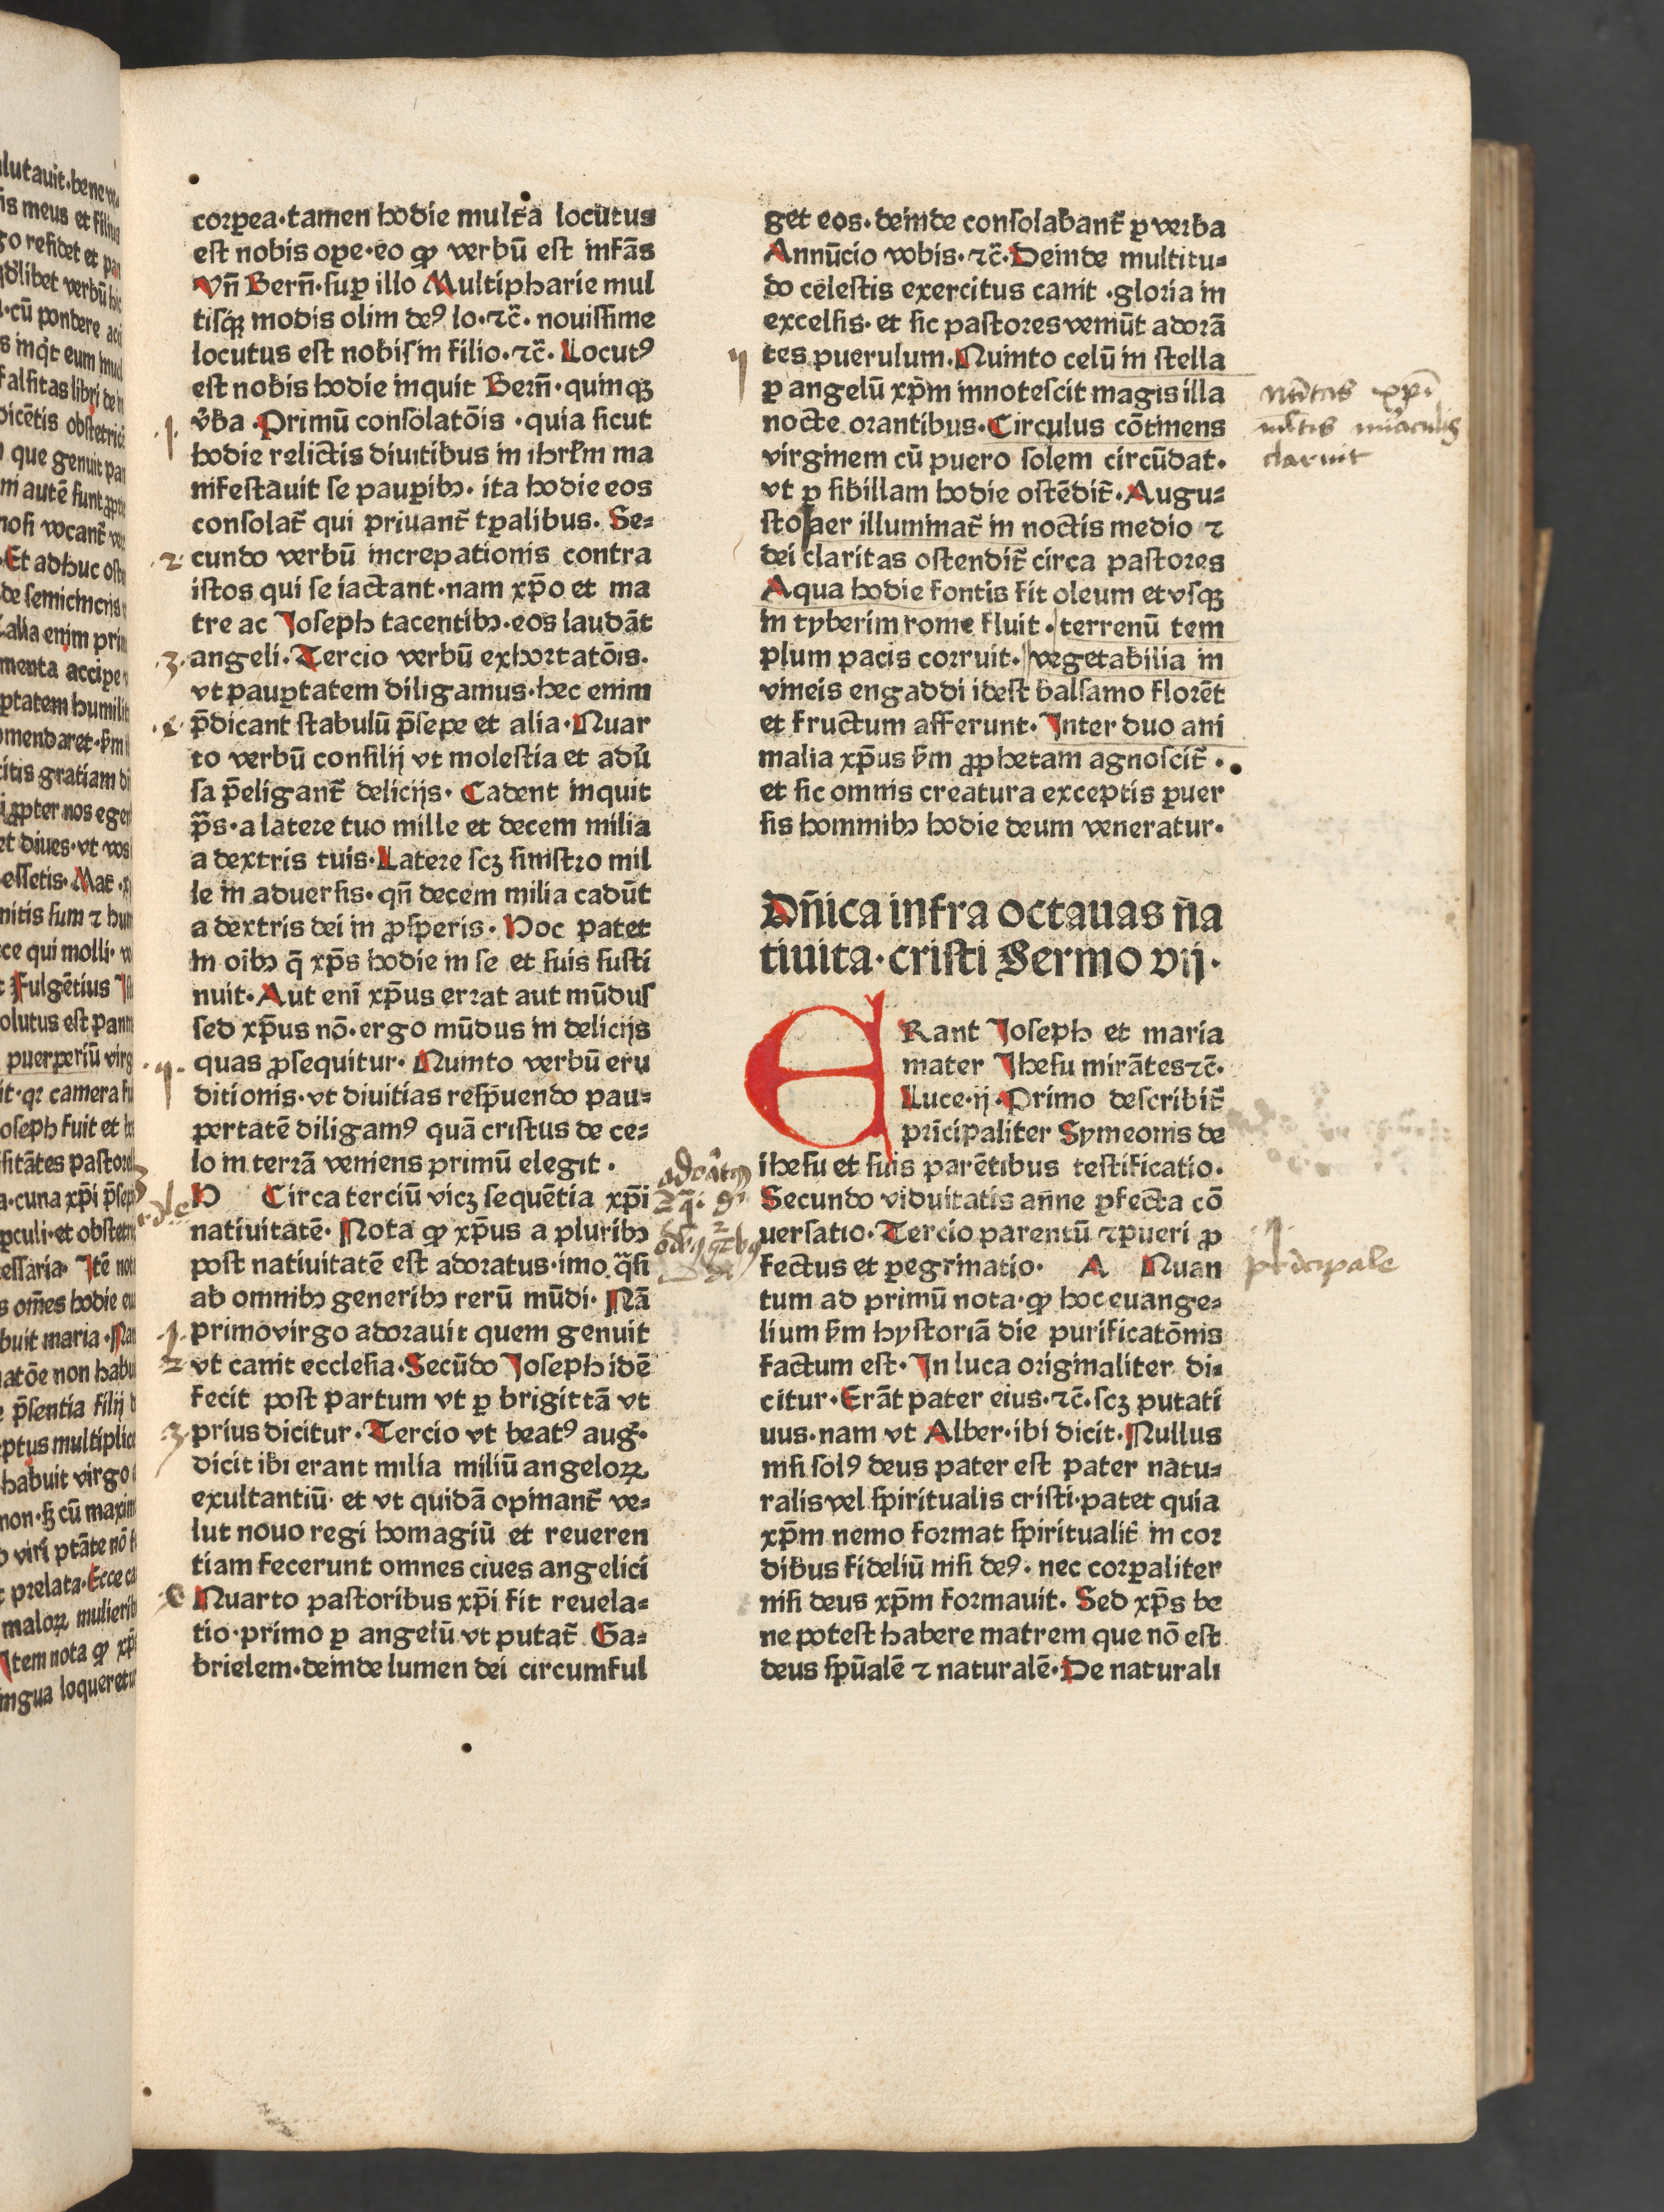 corpea·tamen hodie multa locutus
est nobis ope·eo ꝙ verbū est infās
Vn̄ Bern̄·sup illo Multipharie mul
tisqꝫ modis olim deꝰ lo·⁊c̄· nouissime
locutus est nobis in filio·⁊c̄· Locutꝰ
est nobis hodie inquit Bern̄·quinqꝫ
v̓ba·Primū consolatōis·quia sicut
hodie relictis diuitibus in ihrl̄m ma
nifestauit se paupibꝫ·ita hodie eos
consolat̄ qui priuant̄ tp̱alibus. Se⸗
cundo verbū increpationis contra
istos qui se iactant·nam xp̄o et ma
tre ac Joseph tacentibꝫ·eos laudāt
angeli·Tercio verbū exhortatōis.
vt paup̱tatem diligamus·hec enim
p̄dicant stabulū p̄sepe et alia·Quar
to verbū consilij vt molestia et adu̓
sa p̄eligant̄ delicijs· Cadent inquit
p̄s·a latere tuo mille et decem milia
a dextris tuis·Latere scꝫ sinistro mil
le in aduersis·qn̄ decem milia cadūt
a dextris dei in ꝓsperis· Hoc patet
in oibꝫ q̄ xp̄s hodie in se et suis susti
nuit·Aut eni xp̄us errat aut mūdus
sed xp̄us nō·ergo mūdus in delicijs
quas ꝓsequitur· Quinto verbū eru
ditionis·vt diuitias resp̄uendo pau⸗
pertatē diligamꝰ quā cristus de ce⸗
lo in terrā veniens primū elegit·
H Circa terciū vicꝫ sequētia xp̄i
natiuitatē· Nota ꝙ xp̄us a pluribꝫ
post natiuitatē est adoratus·imo q̄si
ab omnibꝫ generibꝫ rerū mūdi· Nā
primo virgo adorauit quem genuit
vt canit ecclesia·Secūdo Joseph idē
fecit post partum vt ꝑ brigittā vt
prius dicitur·Tercio vt beatꝰ aug̓·
dicit ibi erant milia miliū angeloꝝ
exultantiū· et vt quidā opinant̄ ve⸗
lut nouo regi homagiū et reueren
tiam fecerunt omnes ciues angelici
Quarto pastoribus xp̄i fit reuela⸗
tio·primo ꝑ angelū vt putat̄ Ga⸗
brielem·deinde lumen dei circumful
get eos·deinde consolabant̄ ꝑ verba
Annūcio vobis·⁊c̄·Deinde multitu⸗
do celestis exercitus canit·gloria in
excelsis·et sic pastores veniūt adorā
tes puerulum·Quinto celū in stella
ꝑ angelū xp̄m innotescit magis illa
nocte orantibus·Circulus cōtinens
virginem cū puero solem circūdat·
vt ꝑ sibillam hodie ostēdit̄·Augu⸗
sto aer illuminat̄ in noctis medio ⁊
dei claritas ostendit̄ circa pastores
Aqua hodie fontis fit oleum et vsqꝫ
in tyberim rome fluit·terrenū tem
plum pacis corruit·vegetabilia in
vineis engaddi idest balsamo florēt
et fructum afferunt·Inter duo ani
malia xp̄us s̄m ꝓphetam agnoscit̄·
et sic omnis creatura exceptis puer
sis hominibꝫ hodie deum veneratur·
Dn̄ica infra octauas n̄a
tiuita·cristi Sermo vij·
ERant Joseph et maria
mater Jhesu mirātes⁊c̄·
Luce·ij·Primo describit̄
pri̓cipaliter Symeonis de
ihesu et suis parētibus testificatio·
Secundo viduitatis an̄e ꝑfecta cō
uersatio·Tercio parentū ⁊pueri ꝓ
fectus et ꝑegrinatio· A Quan
tum ad primū nota·ꝙ hoc euange⸗
lium s̄m hystoriā die purificatōnis
factum est·In luca originaliter di⸗
citur·Erāt pater eius·⁊c̄·scꝫ putati
uus·nam vt Alber·ibi dicit·Nullus
nisi solꝰ deus pater est pater natu⸗
ralis vel spiritualis cristi·patet quia
xp̄m nemo format spiritualit̄ in cor
dibus fideliū nisi deꝰ·nec corꝑaliter
nisi deus xp̄m formauit· Sed xp̄s be
ne potest habere matrem que nō est
deus sp̄ualē ⁊ naturalē·De naturali